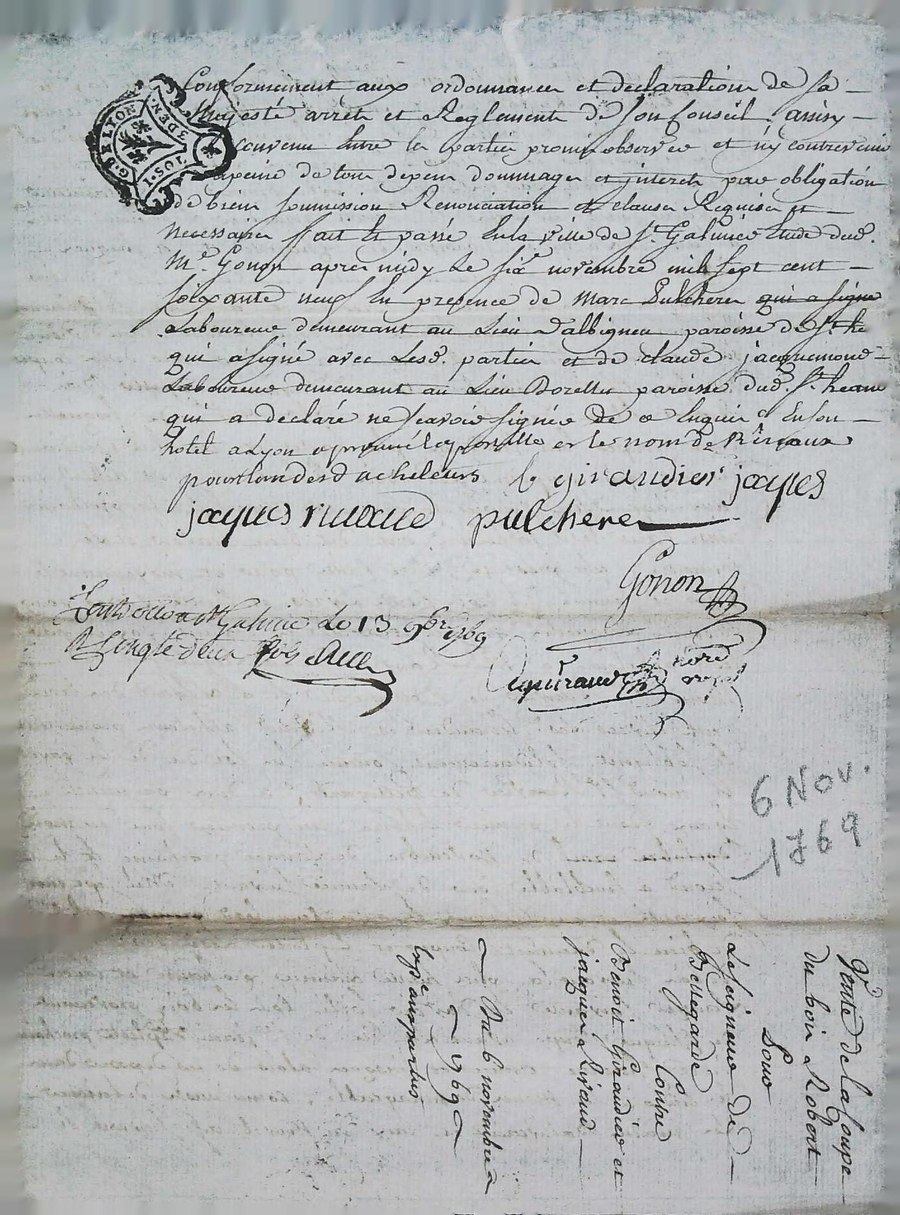 Conformement aux ordonnances et declarations de sa
Majesté arrets et Reglements de son Conseil. ainsy
convenu Entre les parties promis observer et n'y contrevenir
apeine de tous depens dommages et interets par obligation
de biens soumission Renonciation et clauses Requises et
necessaires fait et passé En la ville de St. Galmier Etude dud.
Me. Gonon apres midy Le six novembre mil sept cent
soixante neuf En presence de Marc Pulchere qui a signé
Laboureur demeurant au Lieu d'albigneu paroisse de St. he
qui a signé avec Lesd. parties et de claude jacquemond
Laboureur demeurant au Lieu paroisse dud. St. heand
qui a declaré ne scavoir signer de ce Enquis En son
hotel a Lyon et le nom de
acheteurs giraudier jaques
jaques rivaud pulchere
Gonon
a St Galmier Le 13 9bre 1769
R vingt deux
6 Nov.
1769
Vente de la Coupe
du bois a Robert
Pour
Le seigneur de
Bellegarde
Contre
Benoit Giraudier et
jacques Rivaud
Du 6 novembre
1769
Exp.e aux parties
G. DE LYON
3 DEN.
1 SOL